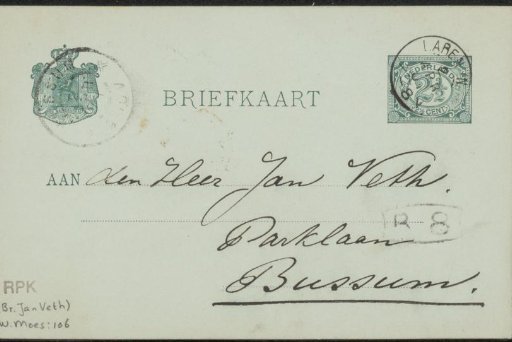 LAREN
NEDERLAND
2½
CENT
BRIEFKAART
AAN den Heer Jan Veth.
B 8
Parklaan
Bussum.
RPK
(Br. Jan Veth)
W. Moes: 106